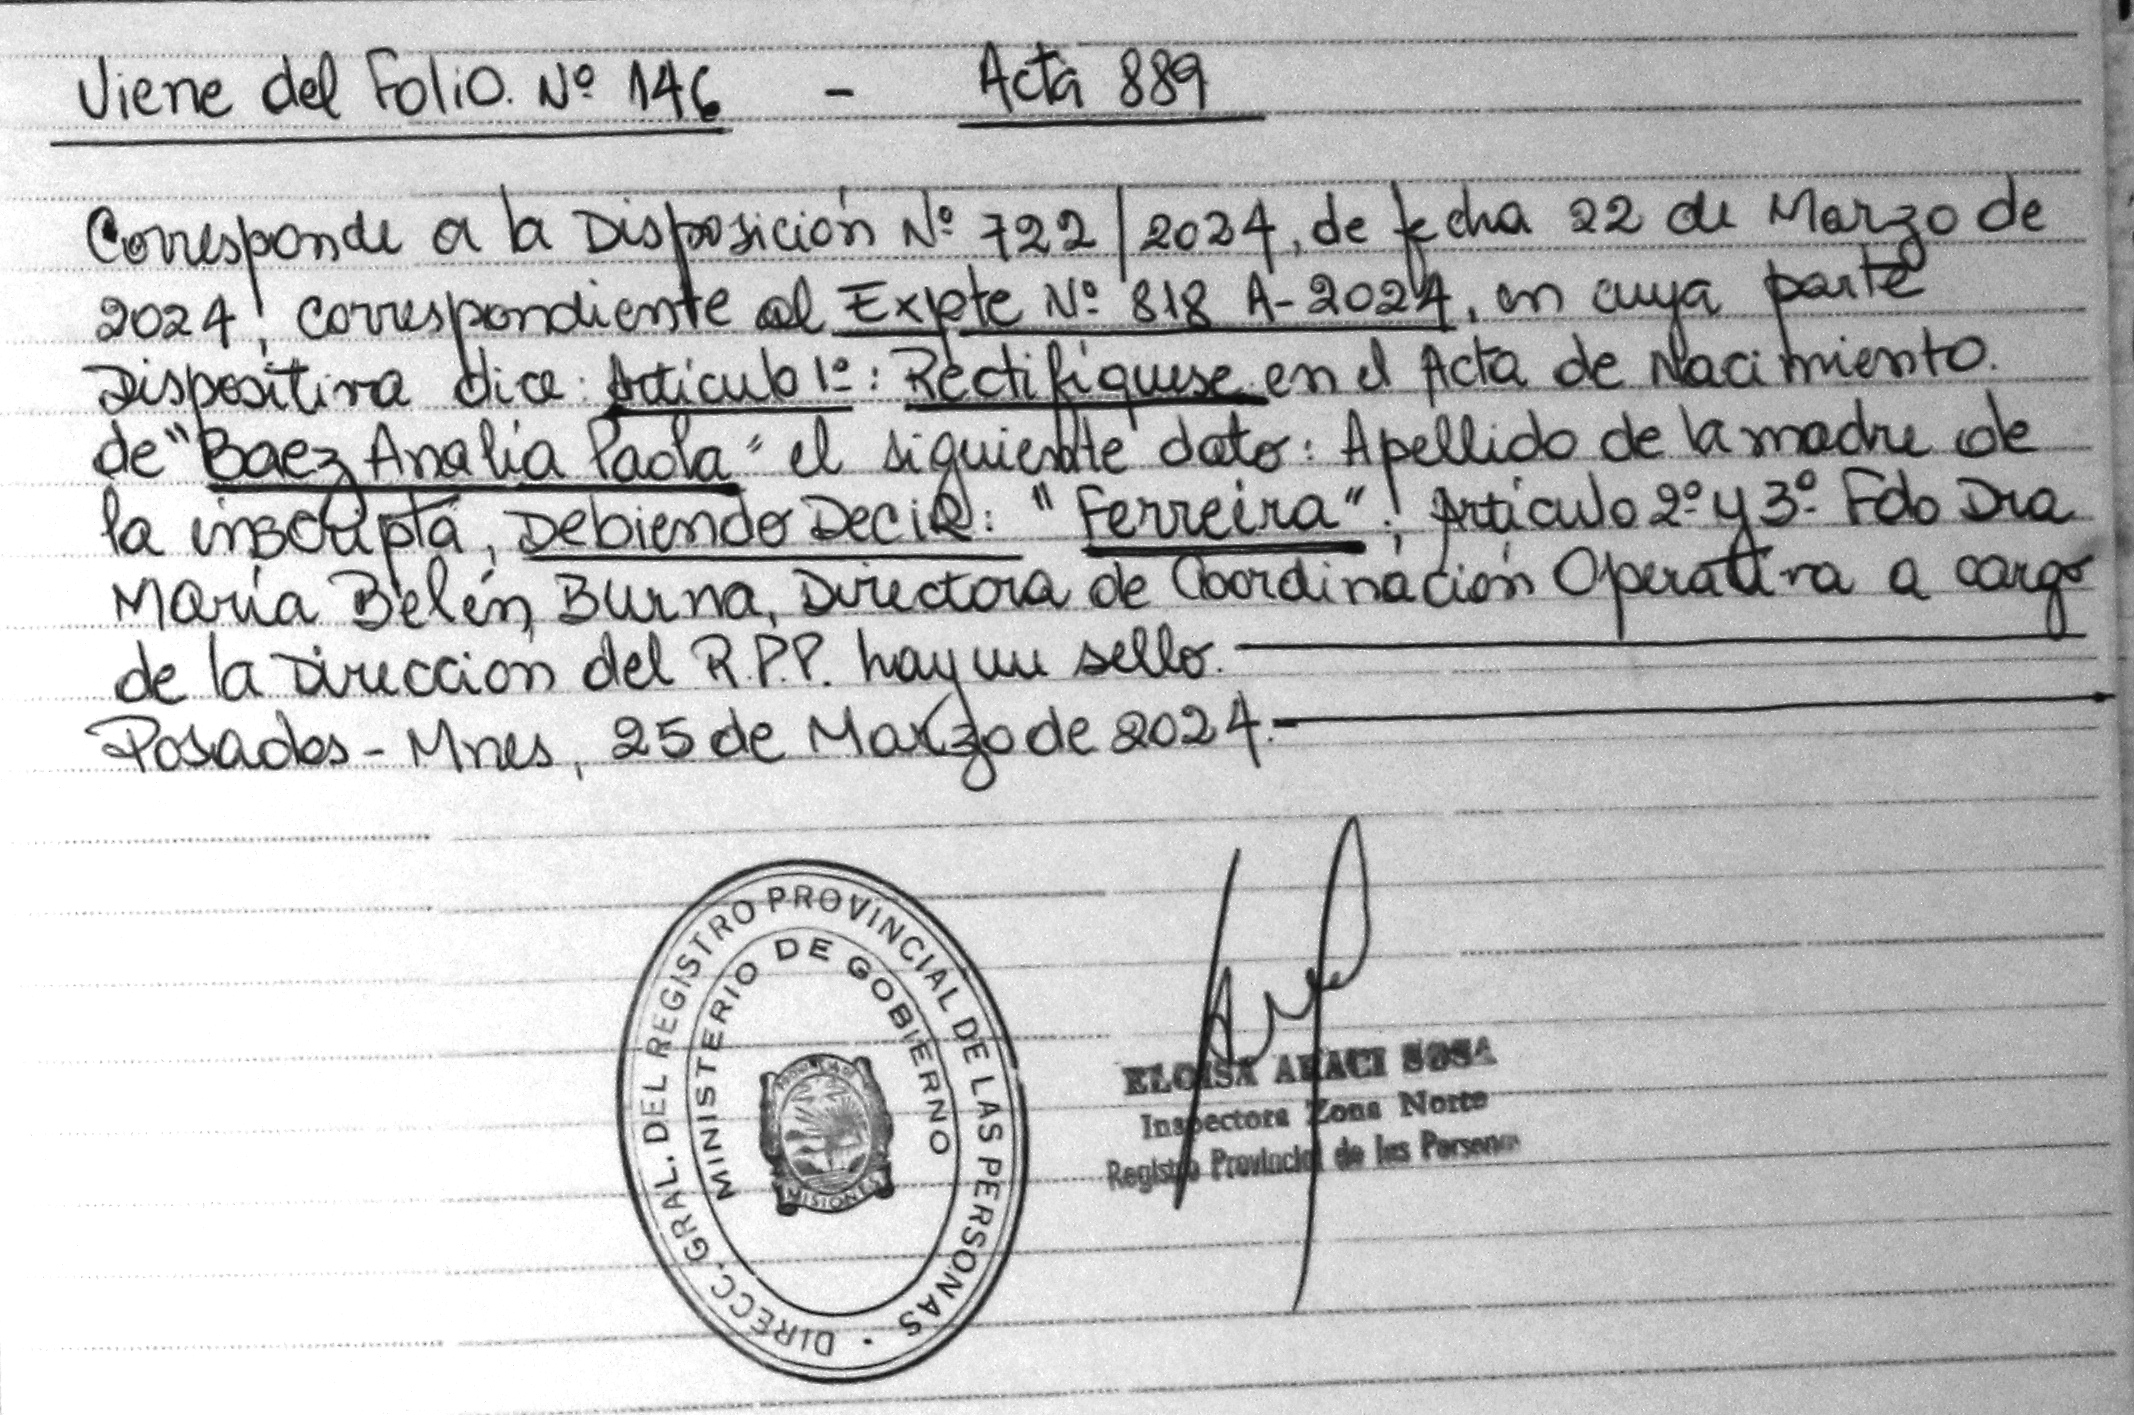 Viene del Folio. Nº 146 - Acta 889
Corresponde a la Disposición Nº 722/2024, de fecha 22 de Marzo de
2024, correspondiente al Expte Nº 818 A-2024, en cuya parte
Dispositiva dice: Artículo 1º: Rectifíquese en el Acta de Nacimiento.
de "Baez Analia Paola" el siguiente dato: Apellido de la madre de
la inscripta, Debiendo Decir: "Ferreira". Artículo 2º y 3º Fdo Dra
María Belén Burna, Directora de Coordinación Operativa a cargo
de la Dirección del R.P.P. hay un sello.
Posadas - Mnes, 25 de Marzo de 2024.
DIRECC. GRAL. DEL REGISTRO PROVINCIAL DE LAS PERSONAS
MINISTERIO DE GOBIERNO
MISIONES
ELOISA ARACI SOSA
Inspectora Zona Norte
Registro Provincial de las Personas